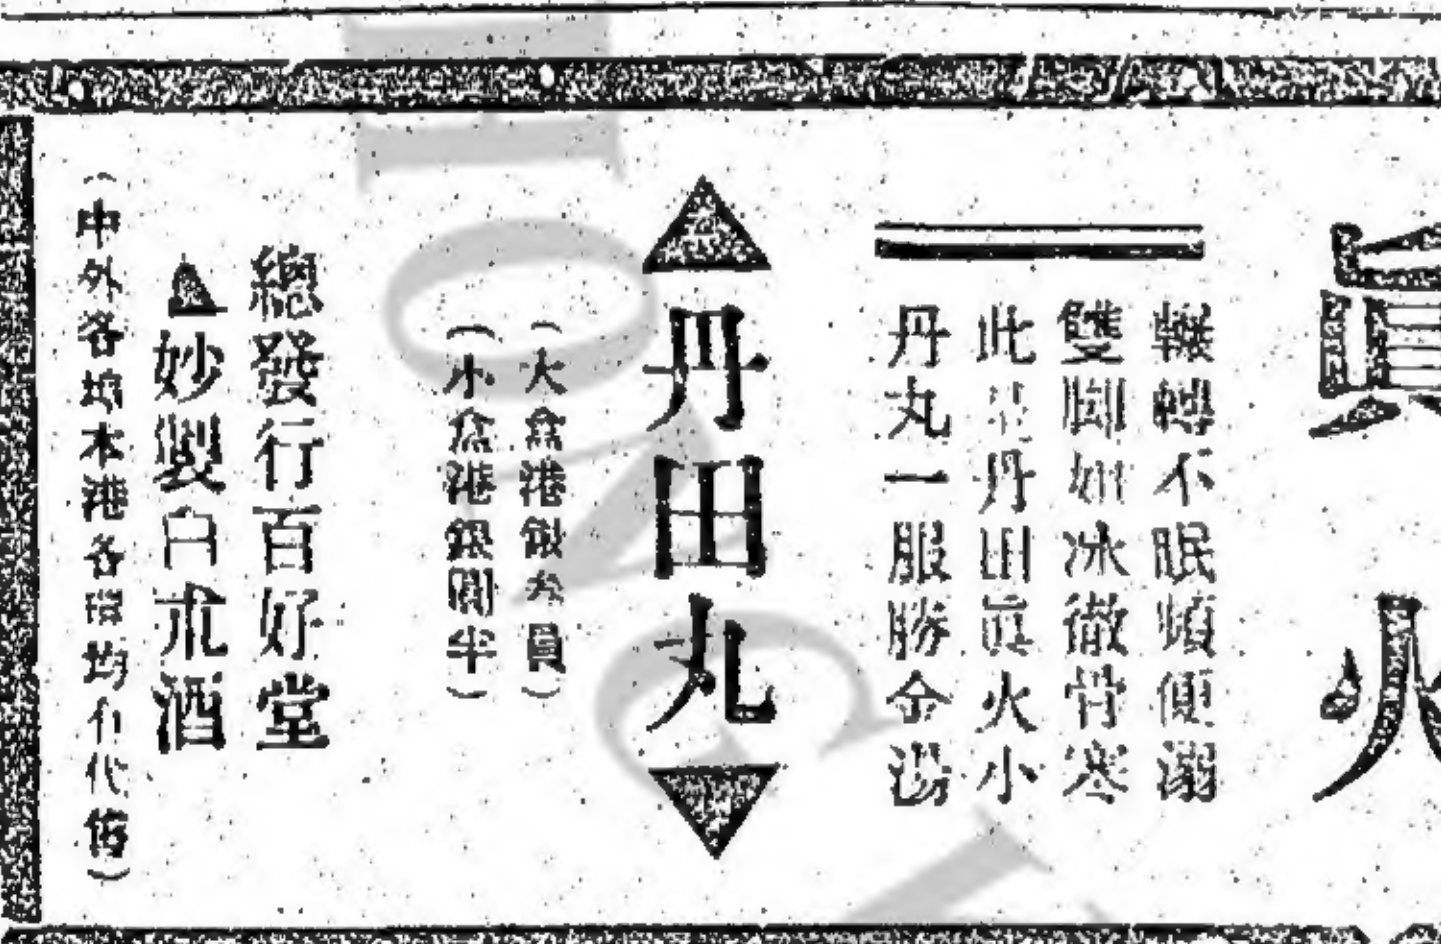 眞火
輾轉不眠頻便溺
雙脚如冰徹骨寒
此是丹田眞火小
丹丸一服勝金湯
▲丹田丸▼
(大盒港銀叁員)
(小盒港銀員半)
總發行百好堂
▲妙製白朮酒
(中外各埠本港各埠均有代售)